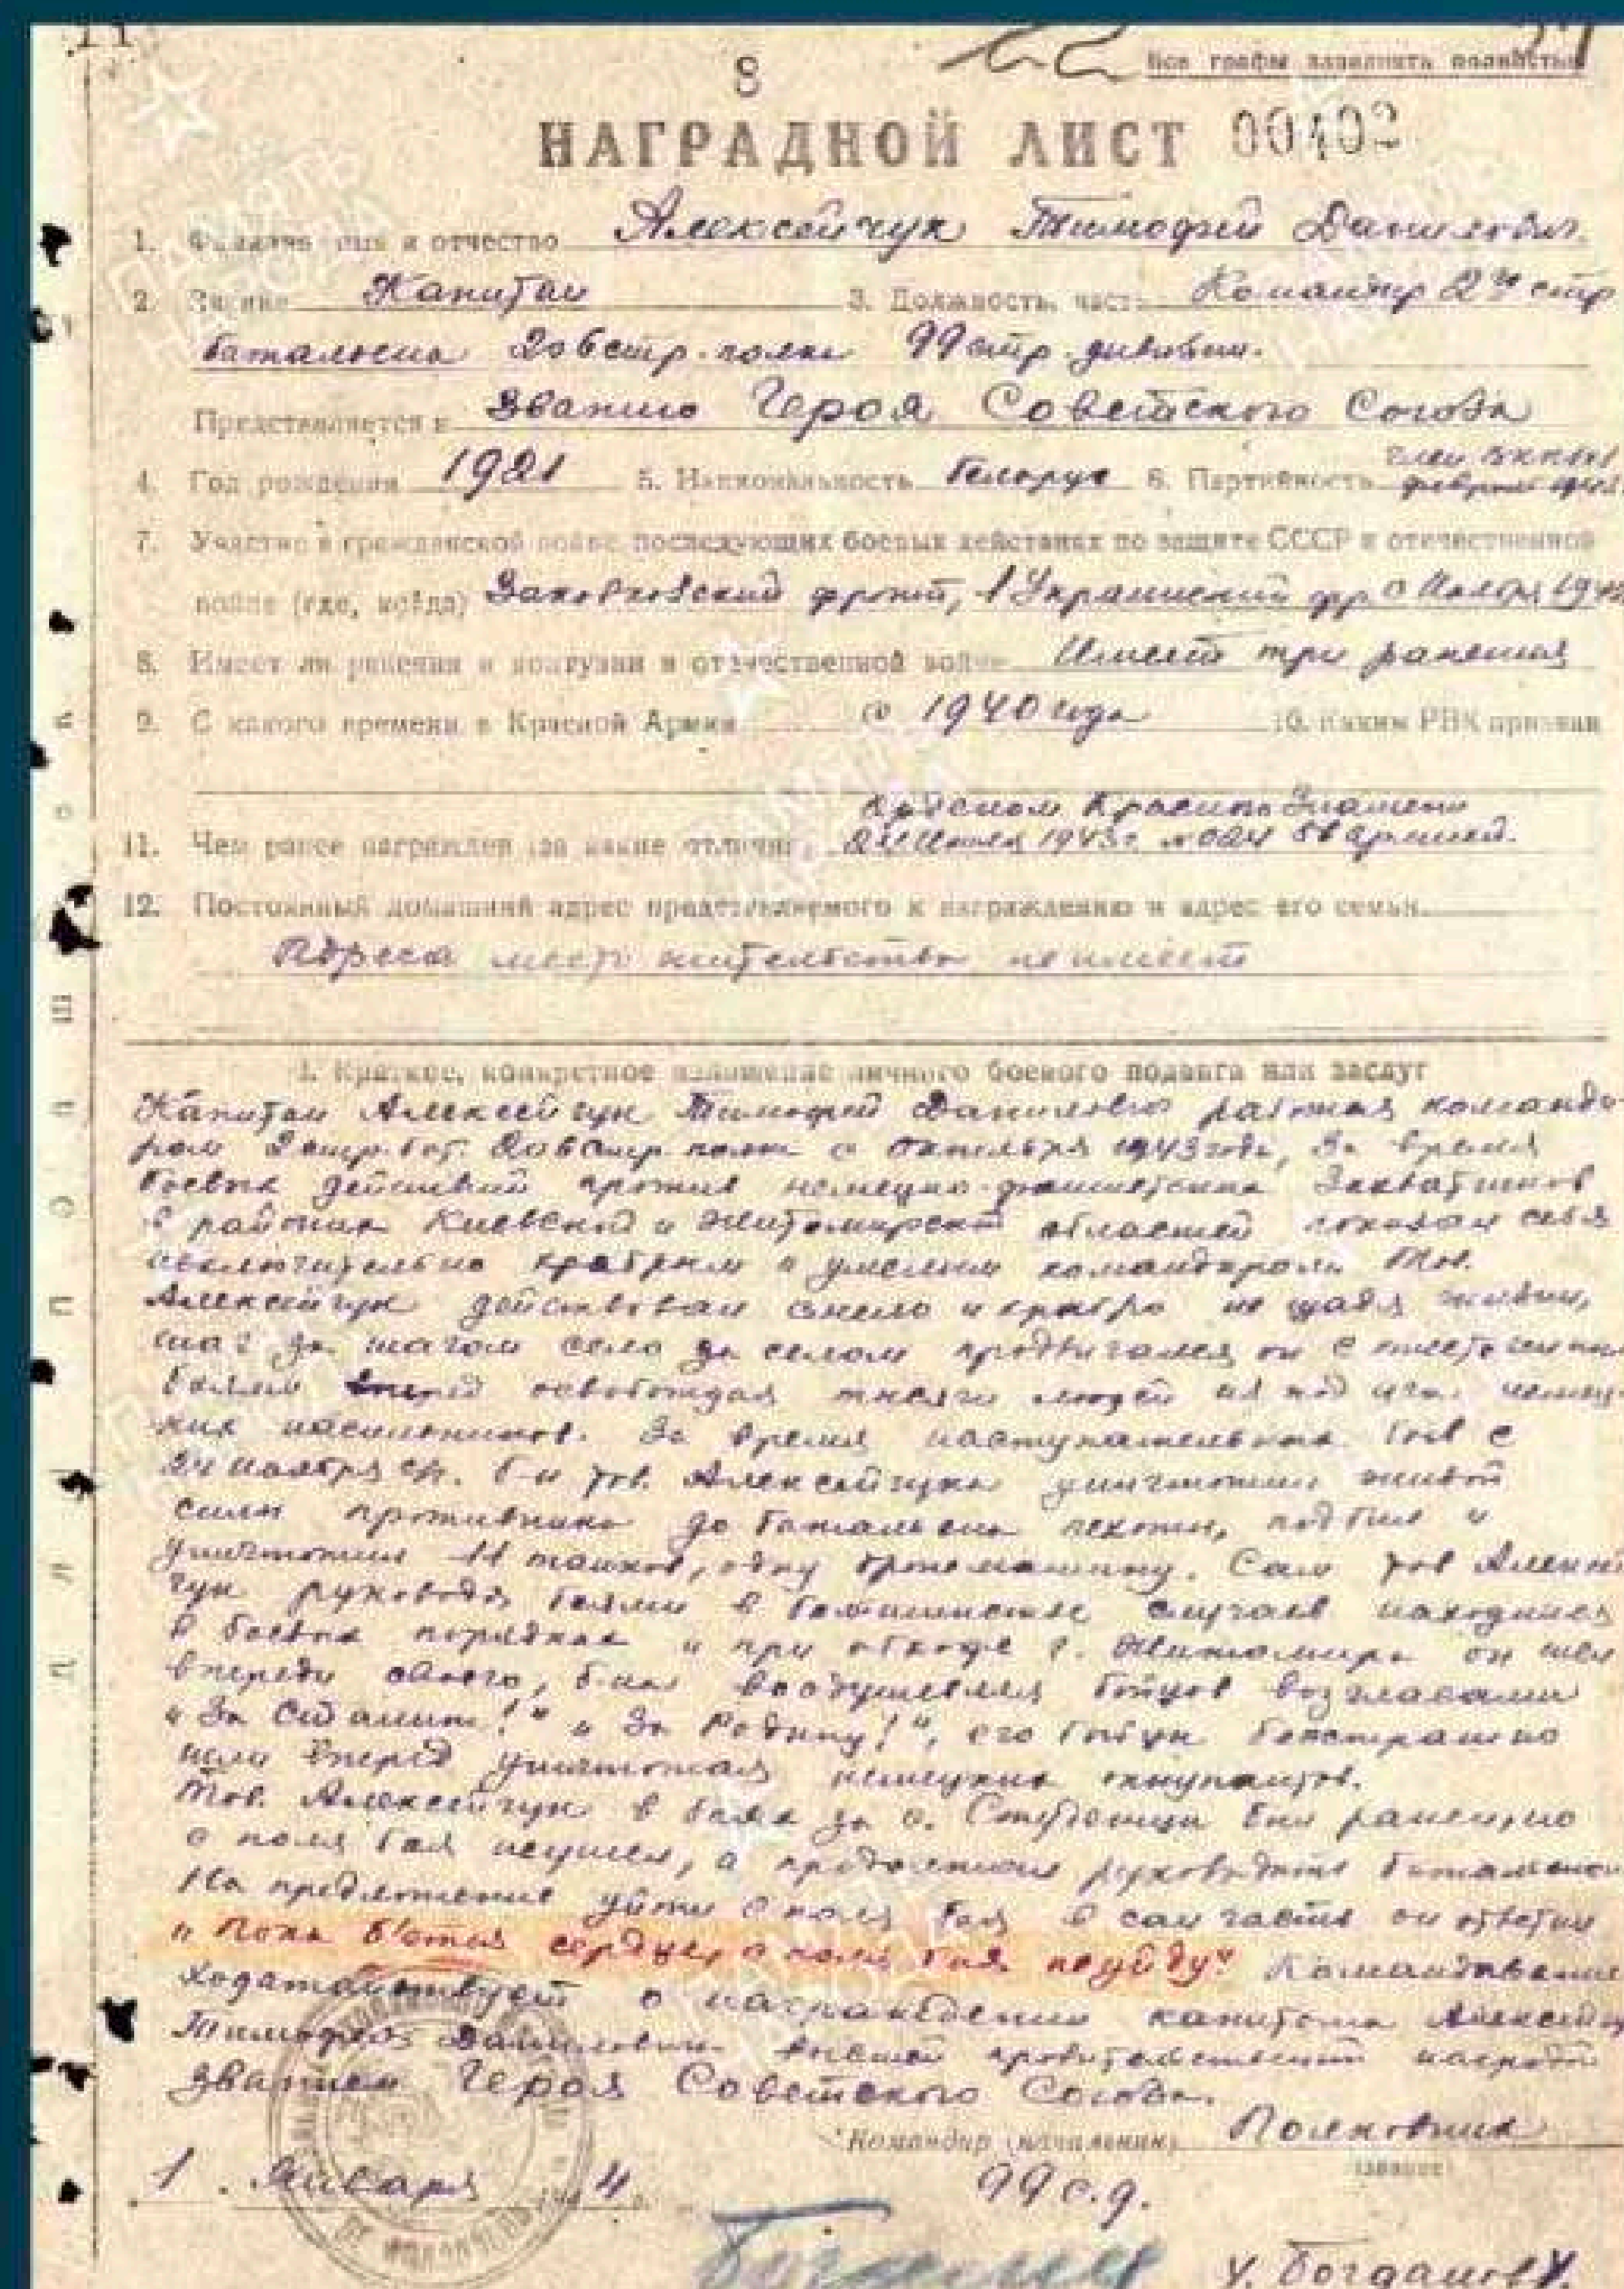 8
Все графы заполнять полностью
НАГРАДНОЙ ЛИСТ 00402
1. Фамилия имя и отчество Алексейчук Тимофей Данилович.
2. Звание Капитан 3. Должность, часть Командир 2го стр
батальона 206 стр. полка 99 стр. дивизии.
Представляется к Званию Героя Советского Союза
4. Год рождения 1921 5. Национальность белорус 6. Партийность член ВКП(б)
7. Участие в гражданской войне последующих боевых действиях по защите СССР и отечественной
войне (где, когда) Закавказский фронт, 1 Украинский фр.
8. Имеет ли ранения и контузии в отечественной войне Имеет три ранения
9. С какого времени в Красной Армии с 1940 года 10. Каким РВК призван
орденом Красное Знамени
11. Чем ранее награжден (за какие отличия) 1943 г.
12. Постоянный домашний адрес представляемого к награждению и адрес его семьи.
Адреса места жительства не имеет
1. Краткое, конкретное изложение личного боевого подвига или заслуг
Капитан Алексейчук Тимофей Данилович работая команди-
ром 2 стр. бат. 206 стр. полка с октября 1943 года, За время
боевых действий против немецко-фашистских захватчиков
в районах Киевской и Житомирской областей показал себя
исключительно храбрым и умелым командиром. Тов.
Алексейчук действовал смело и храбро не щадя жизни,
шаг за шагом село за селом продвигался он с
боями вперед освобождая тысячи людей из под ига немец-
ких насильников. За время наступательных боев с
24 ноября б-н тов. Алексейчука уничтожил живой
силы противника до батальона пехоты, подбил и
уничтожил 11 танков, одну бронемашину. Сам тов Алексей
чук руководя боями в большинстве случаев находился
в боевых порядках и при обходе г. Житомира он шел
впереди своего, б-на воодушевляя бойцов возгласами
"За Сталина!" "За Родину!", его бойцы бесстрашно
шли вперед уничтожая немецких оккупантов.
Тов. Алексейчук в боях за с. Студеница был ранен, но
с поля боя не ушел, а продолжал руководить батальоном
На предложение уйти с поля боя в сан часть он ответил
"Пока бьется сердце, с поля боя не уйду". Командование
ходатайствует о награждении капитана
Тимофея Даниловича высшей правительственной наградой
званием Героя Советского Союза.
Командир (начальник) Полковник
(звание)
1. Января 1944 г. 99 с.д.
Богданов
/. Богданов /.